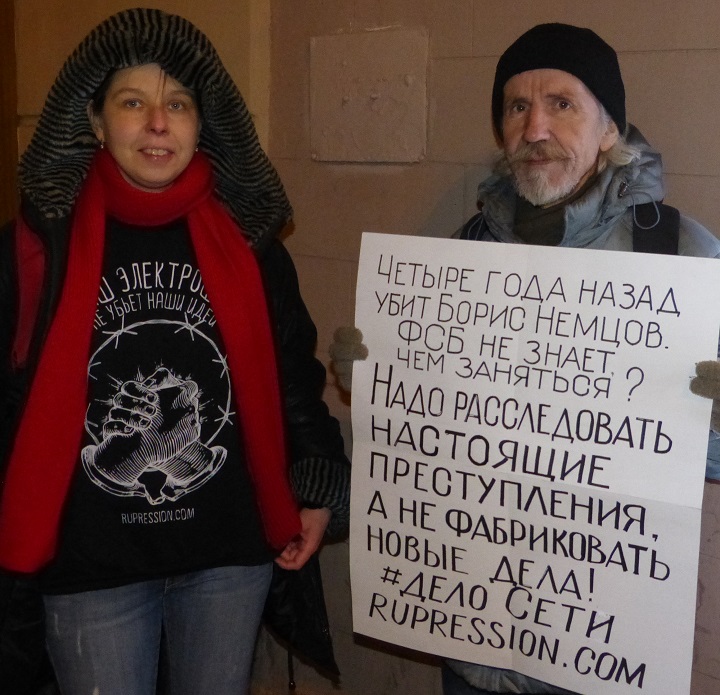 ЭЛЕКТРОШ
НЕ УБЬЕТ НАШИ ИДЕИ
RUPRESSION.COM
Четыре года назад
убит Борис Немцов.
ФСБ не знает,
чем заняться?
Надо расследовать
настоящие
преступления,
а не фабриковать
новые дела!
#Дело Сети
RUPRESSION.COM